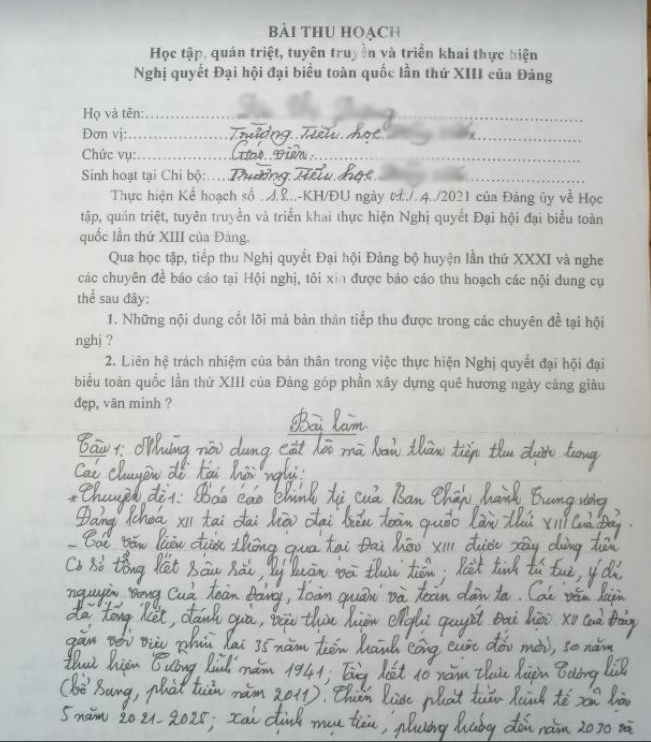 BÀI THU HOẠCH
Học tập, quán triệt, tuyên truyền và triển khai thực hiện
Nghị quyết Đại hội đại biểu toàn quốc lần thứ XIII của Đảng
Họ và tên:
Đơn vị: Trường Tiểu học
Chức vụ: Giáo viên
Sinh hoạt tại Chi bộ: Trường Tiểu học
Thực hiện Kế hoạch số 18-KH/ĐU ngày 01/4/2021 của Đảng ủy về Học
tập, quán triệt, tuyên truyền và triển khai thực hiện Nghị quyết Đại hội đại biểu toàn
quốc lần thứ XIII của Đảng.
Qua học tập, tiếp thu Nghị quyết Đại hội Đảng bộ huyện lần thứ XXXI và nghe
các chuyên đề báo cáo tại Hội nghị, tôi xin được báo cáo thu hoạch các nội dung cụ
thể sau đây:
1. Những nội dung cốt lõi mà bản thân tiếp thu được trong các chuyên đề tại hội
nghị ?
2. Liên hệ trách nhiệm của bản thân trong việc thực hiện Nghị quyết đại hội đại
biểu toàn quốc lần thứ XIII của Đảng góp phần xây dựng quê hương ngày càng giàu
đẹp, văn minh ?
Bài làm
Câu 1: Những nội dung cốt lõi mà bản thân tiếp thu được trong
các chuyên đề tại hội nghị:
* Chuyên đề 1: Báo cáo chính trị của Ban Chấp hành Trung ương
Đảng khóa XII tại đại hội đại biểu toàn quốc lần thứ XIII của Đảng.
- Các văn kiện được thông qua tại Đại hội XIII được xây dựng trên
cơ sở tổng kết sâu sắc, lý luận và thực tiễn; kết tinh trí tuệ, ý chí,
nguyện vọng của toàn Đảng, toàn quân và toàn dân ta. Các văn kiện
đã tổng kết, đánh giá, việc thực hiện Nghị quyết Đại hội XII của Đảng
gắn với việc nhìn lại 35 năm tiến hành công cuộc đổi mới, 30 năm
thực hiện Cương lĩnh năm 1941; tổng kết 10 năm thực hiện Cương lĩnh
(bổ sung, phát triển năm 2011). Chiến lược phát triển kinh tế xã hội
5 năm 2021-2025; xác định mục tiêu, phương hướng đến năm 2030 và